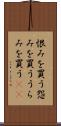 恨みを買う怨
みを買ううら
みを買う((